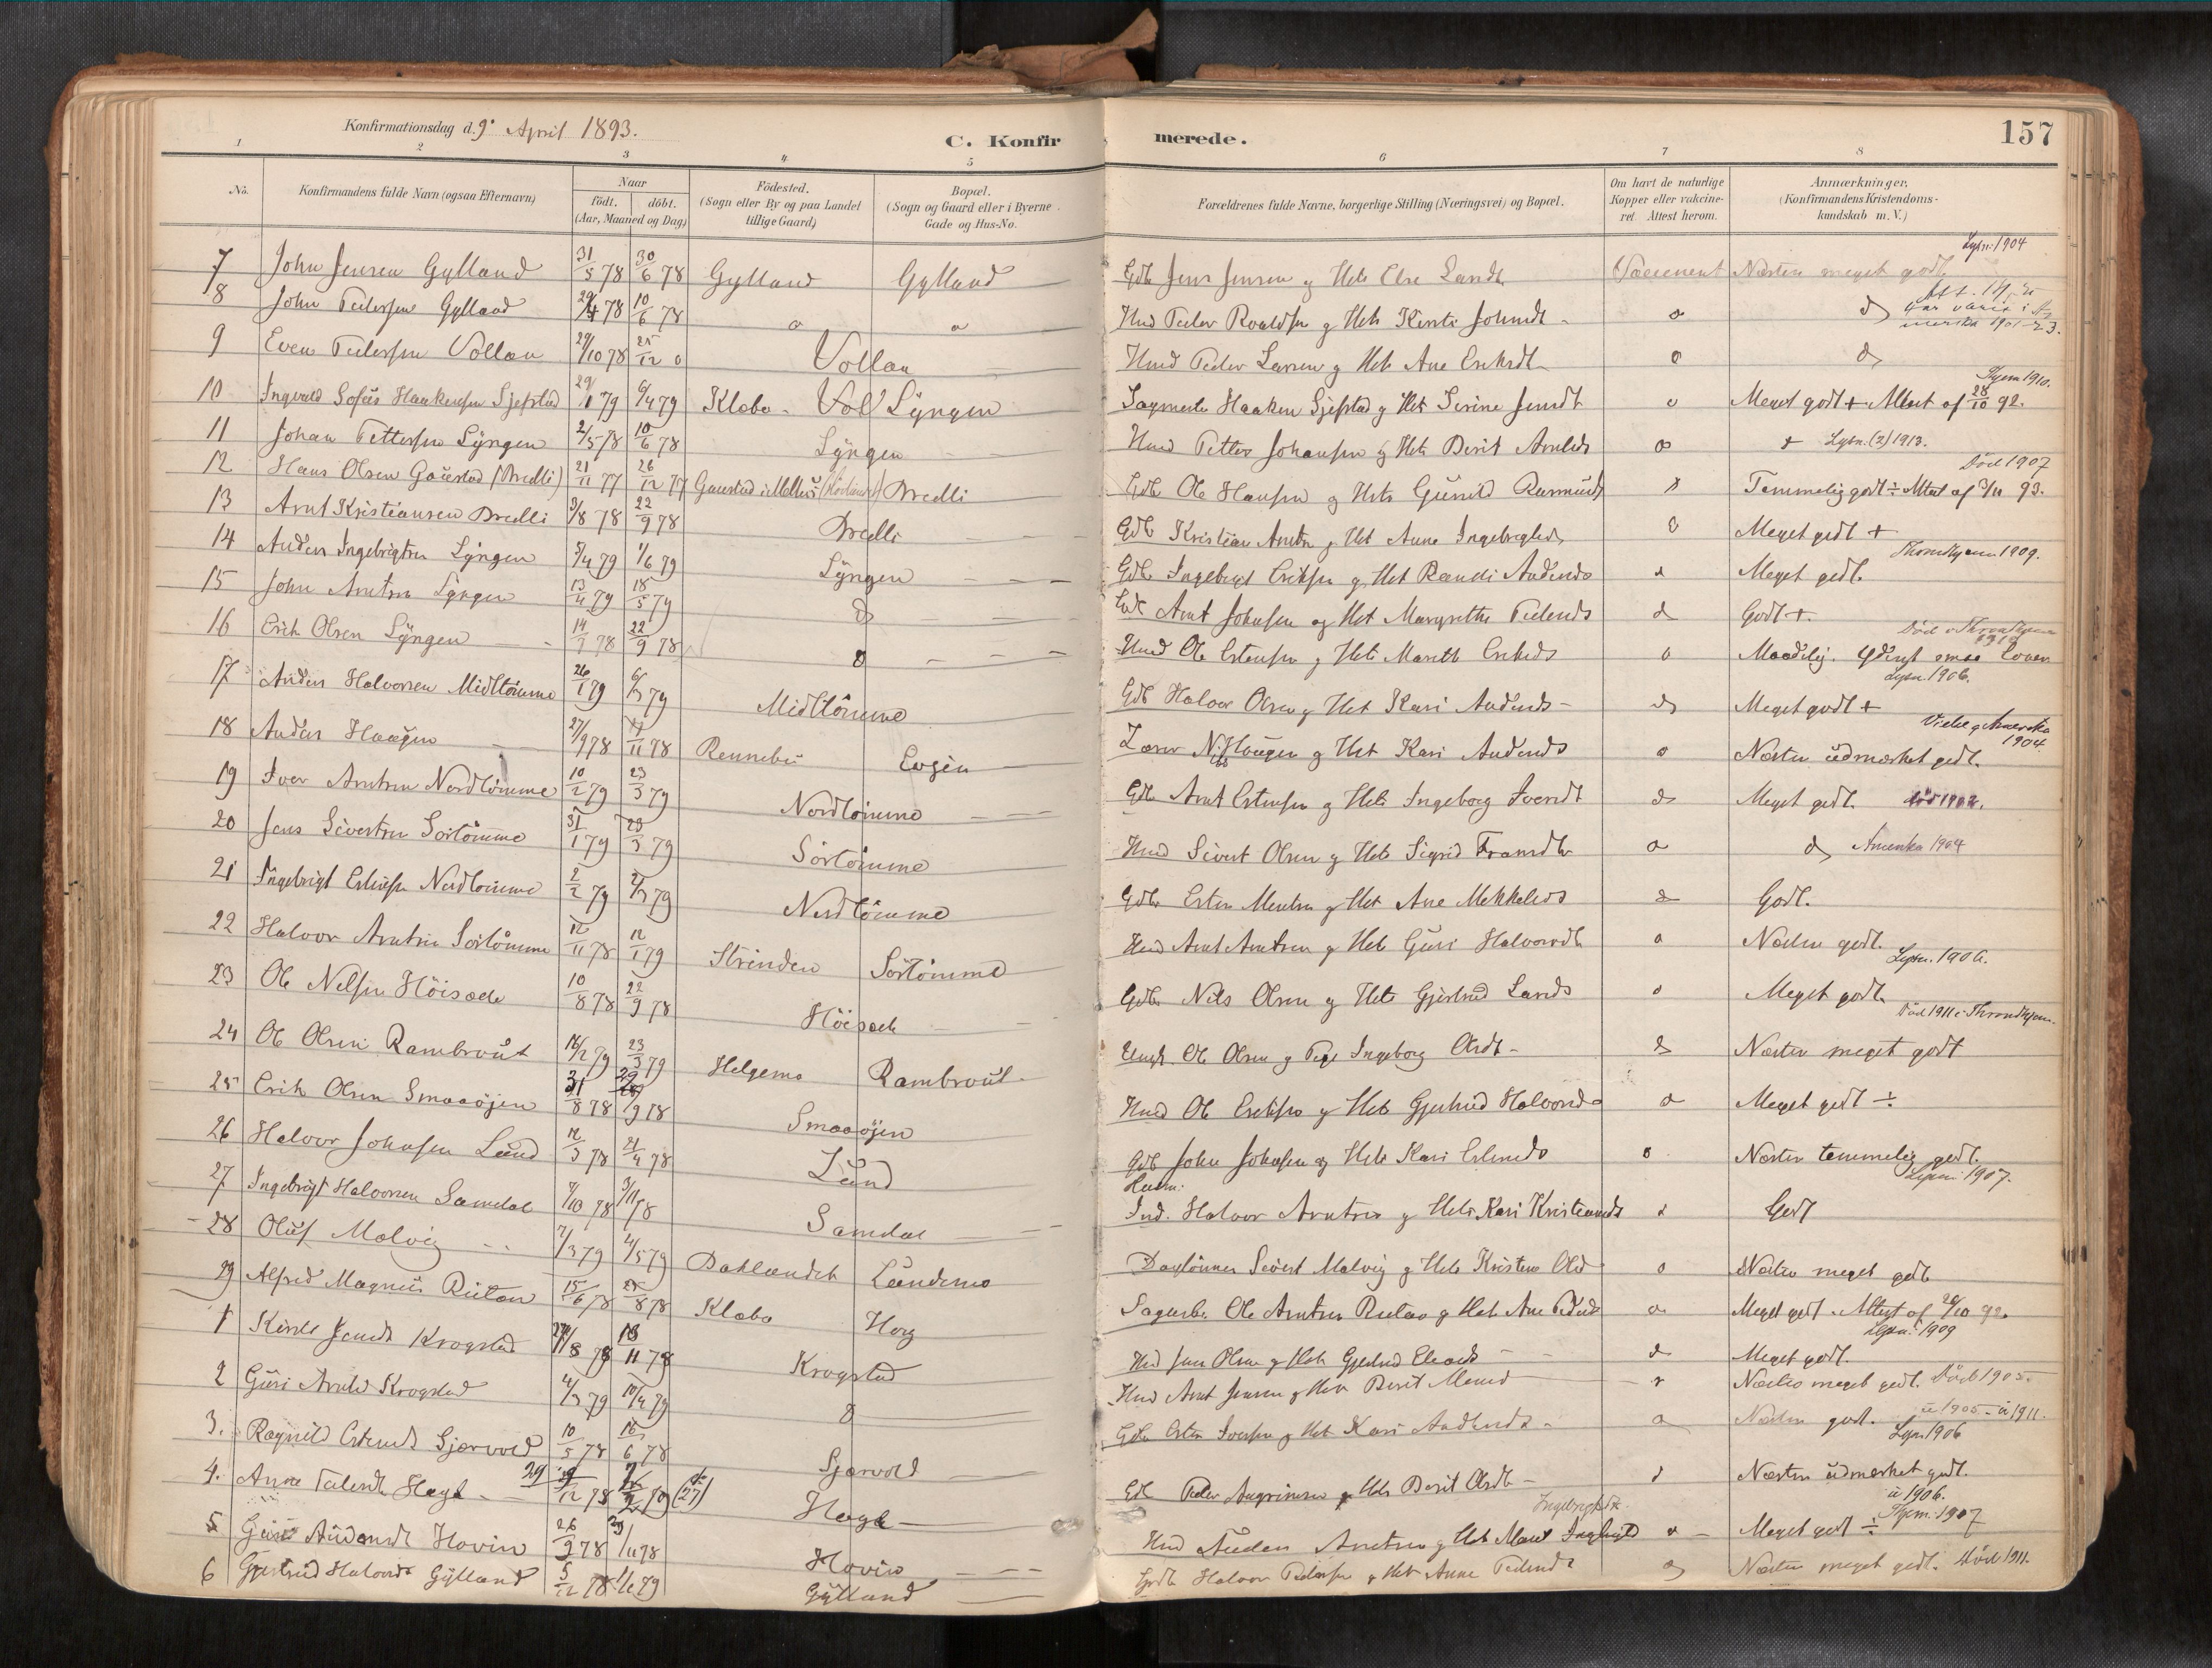 Konfirmationsdag d. 9. April 1893.
C. Konfirmerede.
157
1 2 3 4 5 6 7 8
No. Konfirmandens fulde Navn (ogsaa Efternavn) Naar födt. döbt. (Aar, Maaned og Dag) Födested. (Sogn eller By og paa Landet tillige Gaard) Bopæl. (Sogn og Gaard eller i Byerne Gade og Hus-No. Forældrenes fulde Navne, borgerlige Stilling (Næringsvei) og Bopæl. Om havt de naturlige Kopper eller vakcineret. Attest herom. Anmærkninger, (Konfirmandens Kristendomskundskab m. V.)
7 John Jensen Gylland 31/5 78 30/6 78 Gylland Gylland Gdb Jens Jensen og Hst Else Larsdt Vaccineret Næsten meget godt Lysn. 1904
8 John Pedersen Gylland 29/4 78 10/6 78 Hmd Peder Roaldsen og Hst Kirsti Johnsdt
9 Even Pedersen Vollan 29/10 78 25/12 Vollan Hmd Peder Larsen og Hst Ane Eriksdt
10 Ingvald Sofus Haakensen Sjefstad 29/1 79 6/4 79 Klæbo Vol Lyngen Sagmester Haaken Sjefstad og Hst Serine Jensdt Meget godt + Attest af 28/10 92. Thjem 1910.
11 Johan Pettersen Lyngen 2/5 78 10/6 78 Lyngen Hmd Petter Johansen og Hst Berit Arntsdt Lysn. (2) 1913.
12 Hans Olsen Gaustad (Bredli) 21/11 77 26/12 77 Gaustad i Melhus Bredli Gdb Ole Hansen og Hst Gunild Rasmusdt Temmelig godt ÷ Attest af 3/11 93. Død 1907
13 Arnt Kristiansen Bredli 3/8 78 22/9 78 Bredli Gdb Kristian Arntsen og Hst Anne Ingebrigtsd Meget godt +
14 Anders Ingebrigtsen Lyngen 5/4 79 1/6 79 Lyngen Gdb Ingebrigt Eriksen og Hst Randi Andersd Meget godt. Throndhjem 1909.
15 John Arntsen Lyngen 13/4 79 18/5 79 Gdb Arnt Johnsen og Hst Margrethe Pedersd Godt +.
16 Erik Olsen Lyngen 14/7 78 22/9 78 Hmd Ole Estensen og Hst Marith Eriksd Maadelig. Død i Throndhjem 1912
17 Anders Halvorsen Midttømme 26/1 79 6/3 79 Midttømme Gdb Halvor Olsen og Hst Kari Andersd Meget godt + Lysn. 1906.
18 Anders Haugen 27/9 78 17/11 78 Rennebu Evjen Lærer N. Haugen og Hst Kari Andersd Næsten udmærket godt. Viet i Amerika 1904
19 Iver Arntsen Nordtømme 10/2 79 23/3 79 Nordtømme Gdb Arnt Estensen og Hst Ingeborg Iversdt Meget godt.
20 Jens Sivertsen Sørtømme 31/1 79 23/3 79 Sørtømme Hmd Sivert Olsen og Hst Sigrid Framsdt Amerika 1904
21 Ingebrigt Estensen Nordtømme 2/2 79 2/3 79 Nordtømme Gdb Esten Mentsen og Hst Ane Mikkelsd Godt.
22 Halvor Arntsen Sørtømme 12/11 78 12/1 79 Strinden Sørtømme Hmd Arnt Arntsen og Hst Guri Halvorsdt Næsten godt.
23 Ole Nilsen Høisæte 10/8 78 22/9 78 Høisæte Gdb Nils Olsen og Hst Gjertrud Larsd Meget godt. Lysn. 1906.
24 Ole Olsen Rambraut 16/2 79 23/3 79 Helgemo Rambraut Ungk. Ole Olsen og Pige Ingeborg Olsdt Næsten meget godt Død 1911 i Throndhjem.
25 Erik Olsen Smaaøjen 31/8 78 29/9 78 Smaaøjen Hmd Ole Eriksen og Hst Gjertrud Halvorsd Meget godt ÷
26 Halvor Johnsen Lund 12/3 78 21/4 78 Lund Gdb John Johnsen og Hst Kari Estensd Næsten temmelig godt.
27 Ingebrigt Halvorsen Samdal 7/10 78 3/11 78 Samdal Husm. Ind. Halvor Arntsen og Hst Kari Kristiansd Godt Lysn. 1907.
28 Oluf Malvig 7/3 79 4/5 79 Baklandet Lundemo Dagløner Sivert Malvig og Hst Kristine Olsd Næsten meget godt
29 Alfred Magnus Ruitan 15/6 78 25/8 78 Klæbo Horg Sagarb. Ole Arntsen Ruitan og Hst Ane Pedersd Meget godt. Attest af 20/10 92.
1 Kirsti Jensdt Krogstad 27/8 78 18/11 78 Krogstad Hmd Jens Olsen og Hst Gjertrud Meget godt. Lysn. 1909
2 Guri Arntsd Krogstad 4/3 79 10/4 79 Hmd Arnt Jensen og Hst Berit Næsten meget godt. Død 1905.
3. Ragnild Estensdt Gjærvold 10/5 78 16/6 78 Gjærvold Gdb Esten Iversen og Hst Kari Andersd Næsten godt. 1905 - 1911.
4. Anne Pedersdt Hage 29/12 78 2/2 79 (27) Hage Gdb Peder Asgrimsen og Hst Berit Olsdt Næsten udmærket godt. Lysn. 1906
5 Guri Audensdt Hovin 26/9 78 3/11 78 Hovin Hmd Auden Arntsen og Hst Marit Ingebrigtsdt. Meget godt ÷ 1906. Thjem. 1907
6 Gjertrud Halvorsdt Gylland 5/12 78 1/1 79 Gylland Gdb Halvor Pedersen og Hst Anne Pedersdt Næsten meget godt. Død 1911.